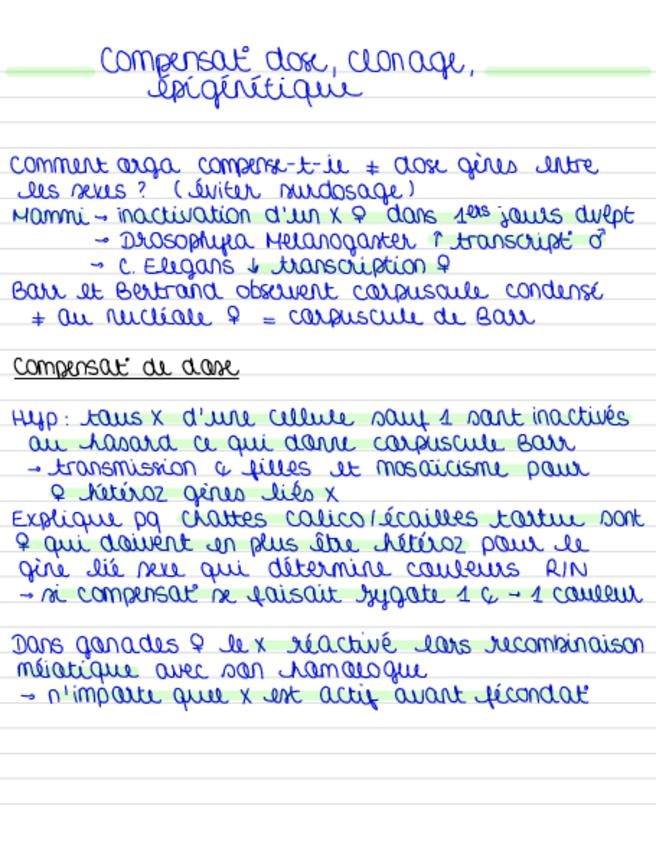 Compensat° dose, clonage,
épigénétique
Comment orga compense-t-il ≠ dose gènes entre
les sexes ? (éviter surdosage)
Mammi → inactivation d'un X ♀ dans 1ers jours dvlpt
→ Drosophyla Melanogaster ↑ transcript° ♂
→ C. Elegans ↓ transcription ♀
Barr et Bertrand observent corpuscule condensé
≠ au nucléole ♀ = corpuscule de Barr
Compensat° de dose
Hyp : tous X d'une cellule sauf 1 sont inactivés
au hasard ce qui donne corpuscule Barr
→ transmission ¢ filles et mosaïcisme pour
♀ hétéroz gènes liés X
Explique pq chattes calico/écailles tortue sont
♀ qui doivent en plus être hétéroz pour le
gène lié sexe qui détermine couleurs R/N
→ si compensat° se faisait zygote 1 ¢ → 1 couleur
Dans gonades ♀ le X réactivé lors recombinaison
méiotique avec son homologue
→ n'importe quel X est actif avant fécondat°